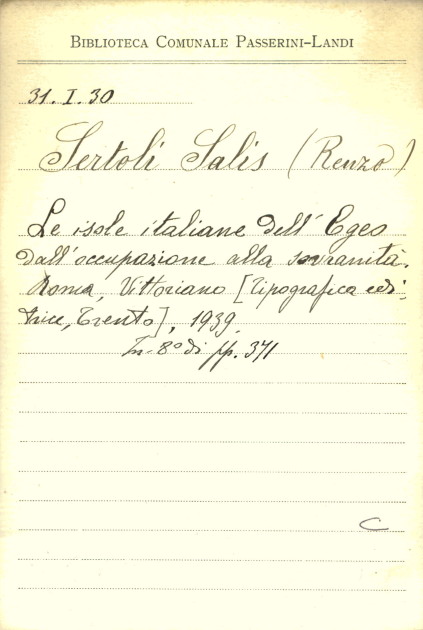 BIBLIOTECA COMUNALE PASSERINI-LANDI
31.I.30
Sertoli Salis (Renzo)
Le isole italiane dell'Egeo
dall'occupazione alla sovranità.
Roma, Vittoriano [Tipografica edi-
trice, Trento], 1939.
In-8° di pp. 371
C